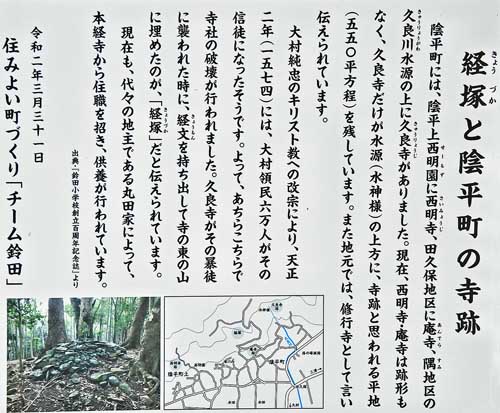 経塚と陰平町の寺跡
きょう づか
陰平町には、陰平上西明園に西明寺、田久保地区に庵寺、隅地区の
久良川水源の上に久良寺がありました。現在、西明寺・庵寺は跡形も
なく、久良寺だけが水源(水神様)の上方に、寺跡と思われる平地
(五五〇平方程)を残しています。また地元では、修行寺として言い
伝えられています。
大村純忠のキリスト教への改宗により、天正
二年(一五七四)には、大村領民六万人がその
信徒になったそうです。よって、あちらこちらで
寺社の破壊が行われました。久良寺がその暴徒
に襲われた時に、経文を持ち出して寺の東の山
に埋めたのが、「経塚」だと伝えられています。
現在も、代々の地主である丸田家によって、
本経寺から住職を招き、供養が行われています。
出典:「鈴田小学校創立百周年記念誌」より
令和二年三月三十一日
住みよい町づくり「チーム鈴田」
陰平町